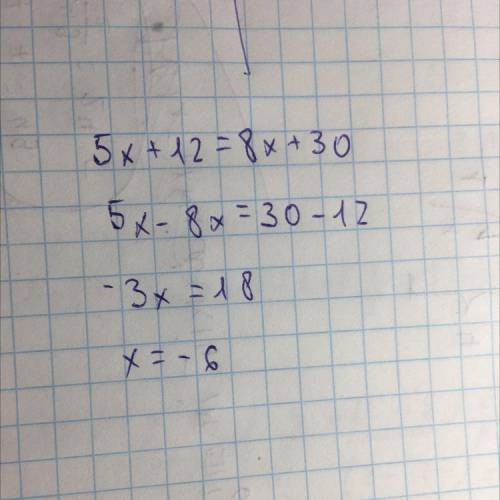 5x+12=8x+30
5x-8x=30-12
-3x=18
x=-6